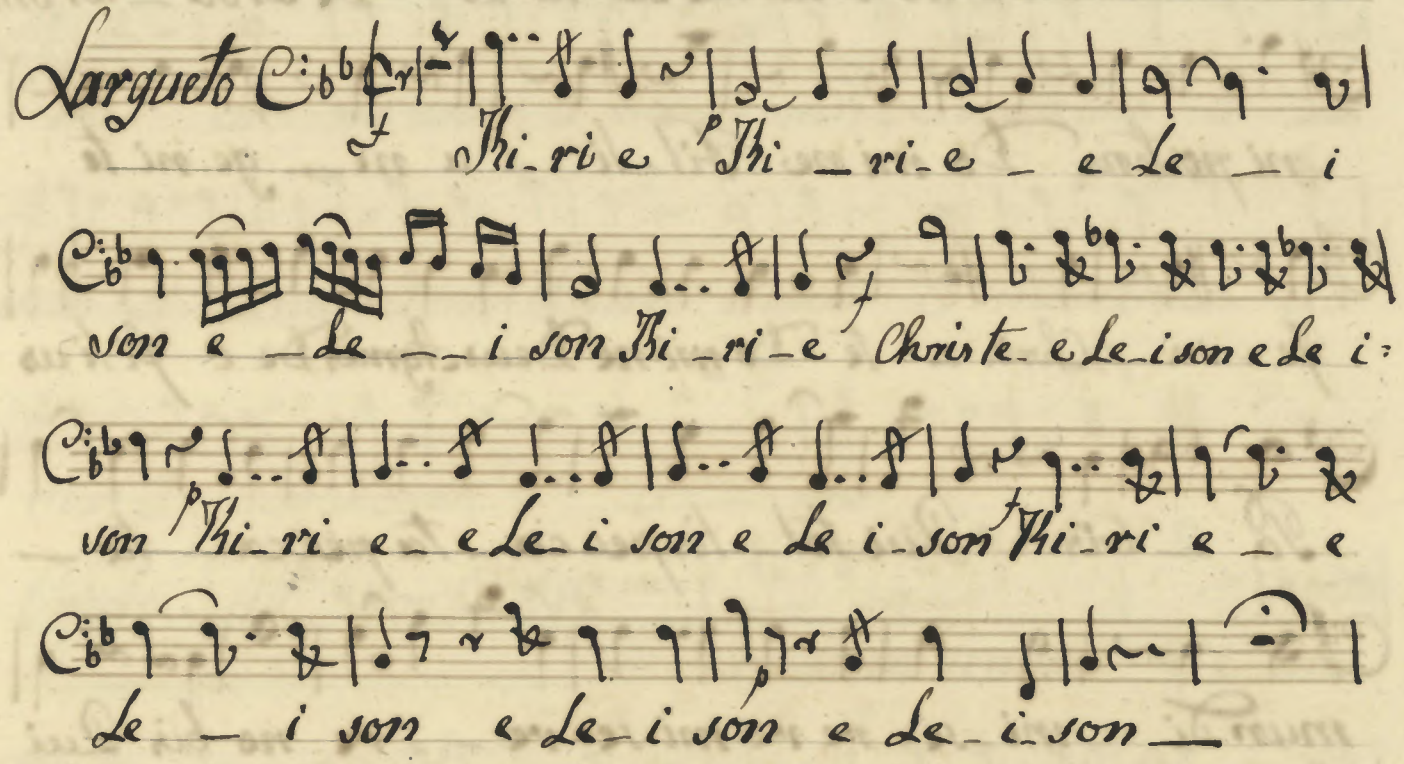 Largueto
f Kirie p Ki_ri_e _ e Le _ i
son e _Le _ _ i son Ki_ri_e f Christe_ e Le_ison e Le i:
son p Ki_ri e_ e Le_i son e Le i_son f Ki_ri e _ e
Le _ i son e Le_i son p e Le_i_son _